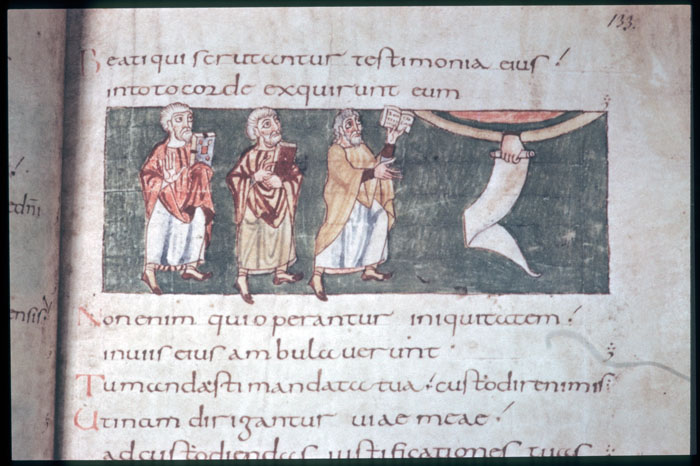 133.
Beati qui scrutantur testimonia eius!
intoto corde exquirunt eum
Non enim qui operantur iniquitatem!
inuiis eius ambulauerunt
Tu mandasti mandata tua! custodire nimis
Utinam dirigantur uiae meae!
ad custodiendas iustificationes tuas